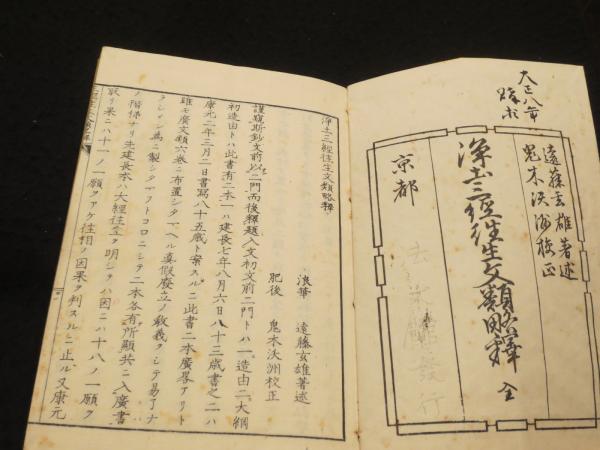 大正八年
遠藤玄雄著述
鬼木沃洲校正
浄土三経往生文類略釋 全
京都
發行
浄土三經往生文類略釋
浪華 遠藤玄雄著述
肥後 鬼木沃洲校正
謹窺斯鈔文前以二門而後釋題入文初文前二門トハ一造由二大綱
初造由トハ此書有二本一ハ建長七年八月六日八十三歳書之二ハ
康元二年三月二日書寫八十五歳ト案スルニ此書二本廣畧アリト
雖モ廣文類六巻ニ布置シタマヘル眞假廢立ノ敎義ヲシテ易了ナ
ラシメン爲ニ製シタマフトコロニシテ二本各有所顯共ニ入廣書
ノ楷梯ナリ先建長本ハ大經往生ヲ明シタハ因ニ十八ノ一願ヲ
取リ果ニハ十一ノ一願ヲアケ往相ノ因果ヲ判スルニ止ル又康元